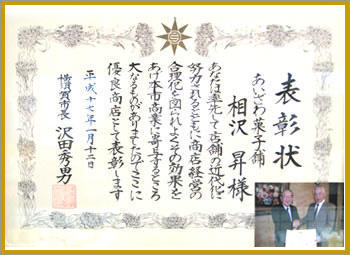 表彰状
あいざわ菓子舗
相沢 昇様
あなたは率先して店舗の近代化に
努力されるとともに商店経営の
合理化を図られよくその効果を
あげ本市商業に寄与するところ
大なるものがありますのでここに
優良商店として表彰します
平成十七年一月十二日
横須賀市長 沢田秀男